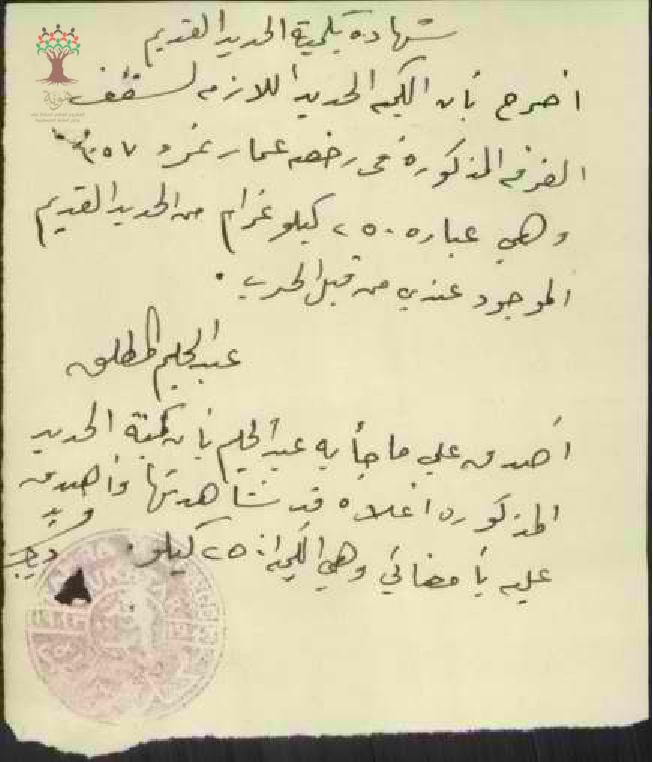 شهادة بكمية الحديد القديم
اصرح بأن الكميه الحديد اللازمه لسقف
الغرفه المذكورة في رخصه عمار نمرو
وهي عباره ٢٥٠ كيلو غرام من الحديد القديم
الموجود عندي من قبل الحرب .
عبد الحليم المطلق
أصدق علي ما جأ به عبد الحليم بأن كمية الحديد
المذكوره اعلاه قد شاهدتها وأصدق
عليه بأمضائي وهي الكمية ٢٥٠ كيلو .
هوية